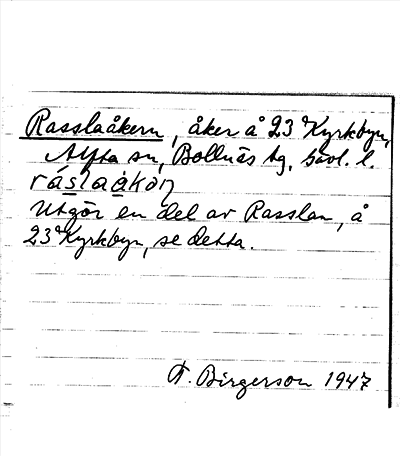 Rasslaåkern, åker å 23 Kyrkbyn,
Alfta sn, Bollnäs tg, Gävl. l.
ráslaákon̥
Utgör en del av Rasslan, å
23 Kyrkbyn, se detta.
F. Birgerson 1947